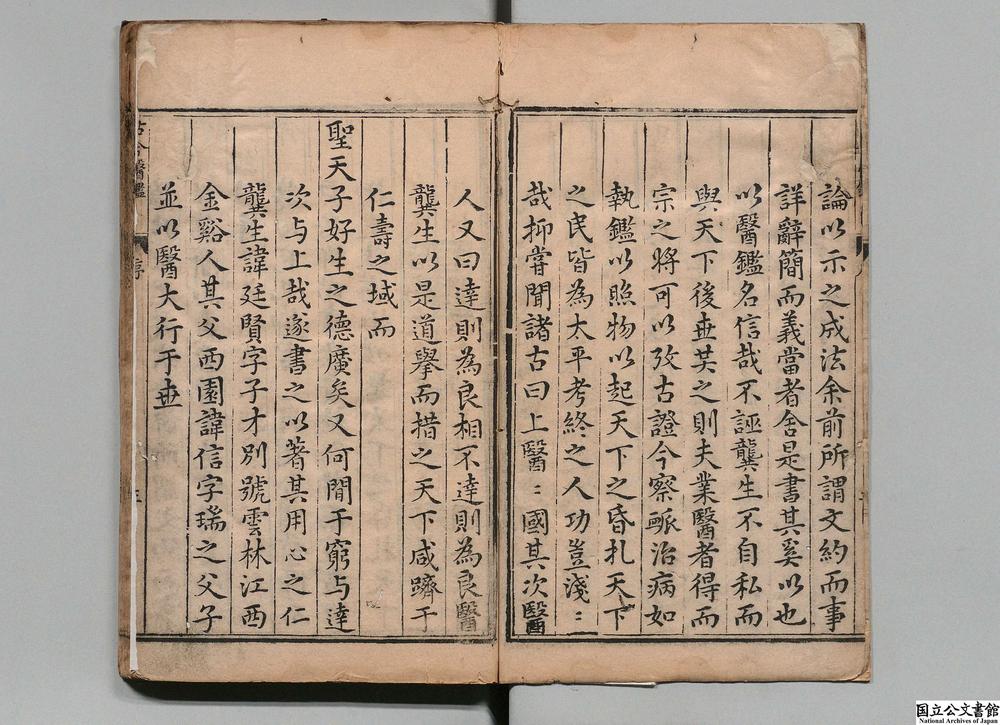 論以示之成法余前所謂文約而事
詳辭簡而義當者舍是書其奚以也
以醫鑑名信哉不誣龔生不自私而
與天下後世共之則夫業醫者得而
宗之將可以攷古證今察脈治病如
執鑑以照物以起天下之昏札天下
之民皆為太平考終之人功豈淺〻
哉抑嘗聞諸古曰上醫〻國其次醫
人又曰達則為良相不達則為良醫
龔生以是道舉而措之天下咸躋于
仁壽之域而
聖天子好生之德廣矣又何間于窮与達
次与上哉遂書之以著其用心之仁
龔生諱廷賢字子才別號雲林江西
金谿人其父西園諱信字瑞之父子
並以醫大行于世
古今醫鑑
序
三
国立公文書館
National Archives of Japan